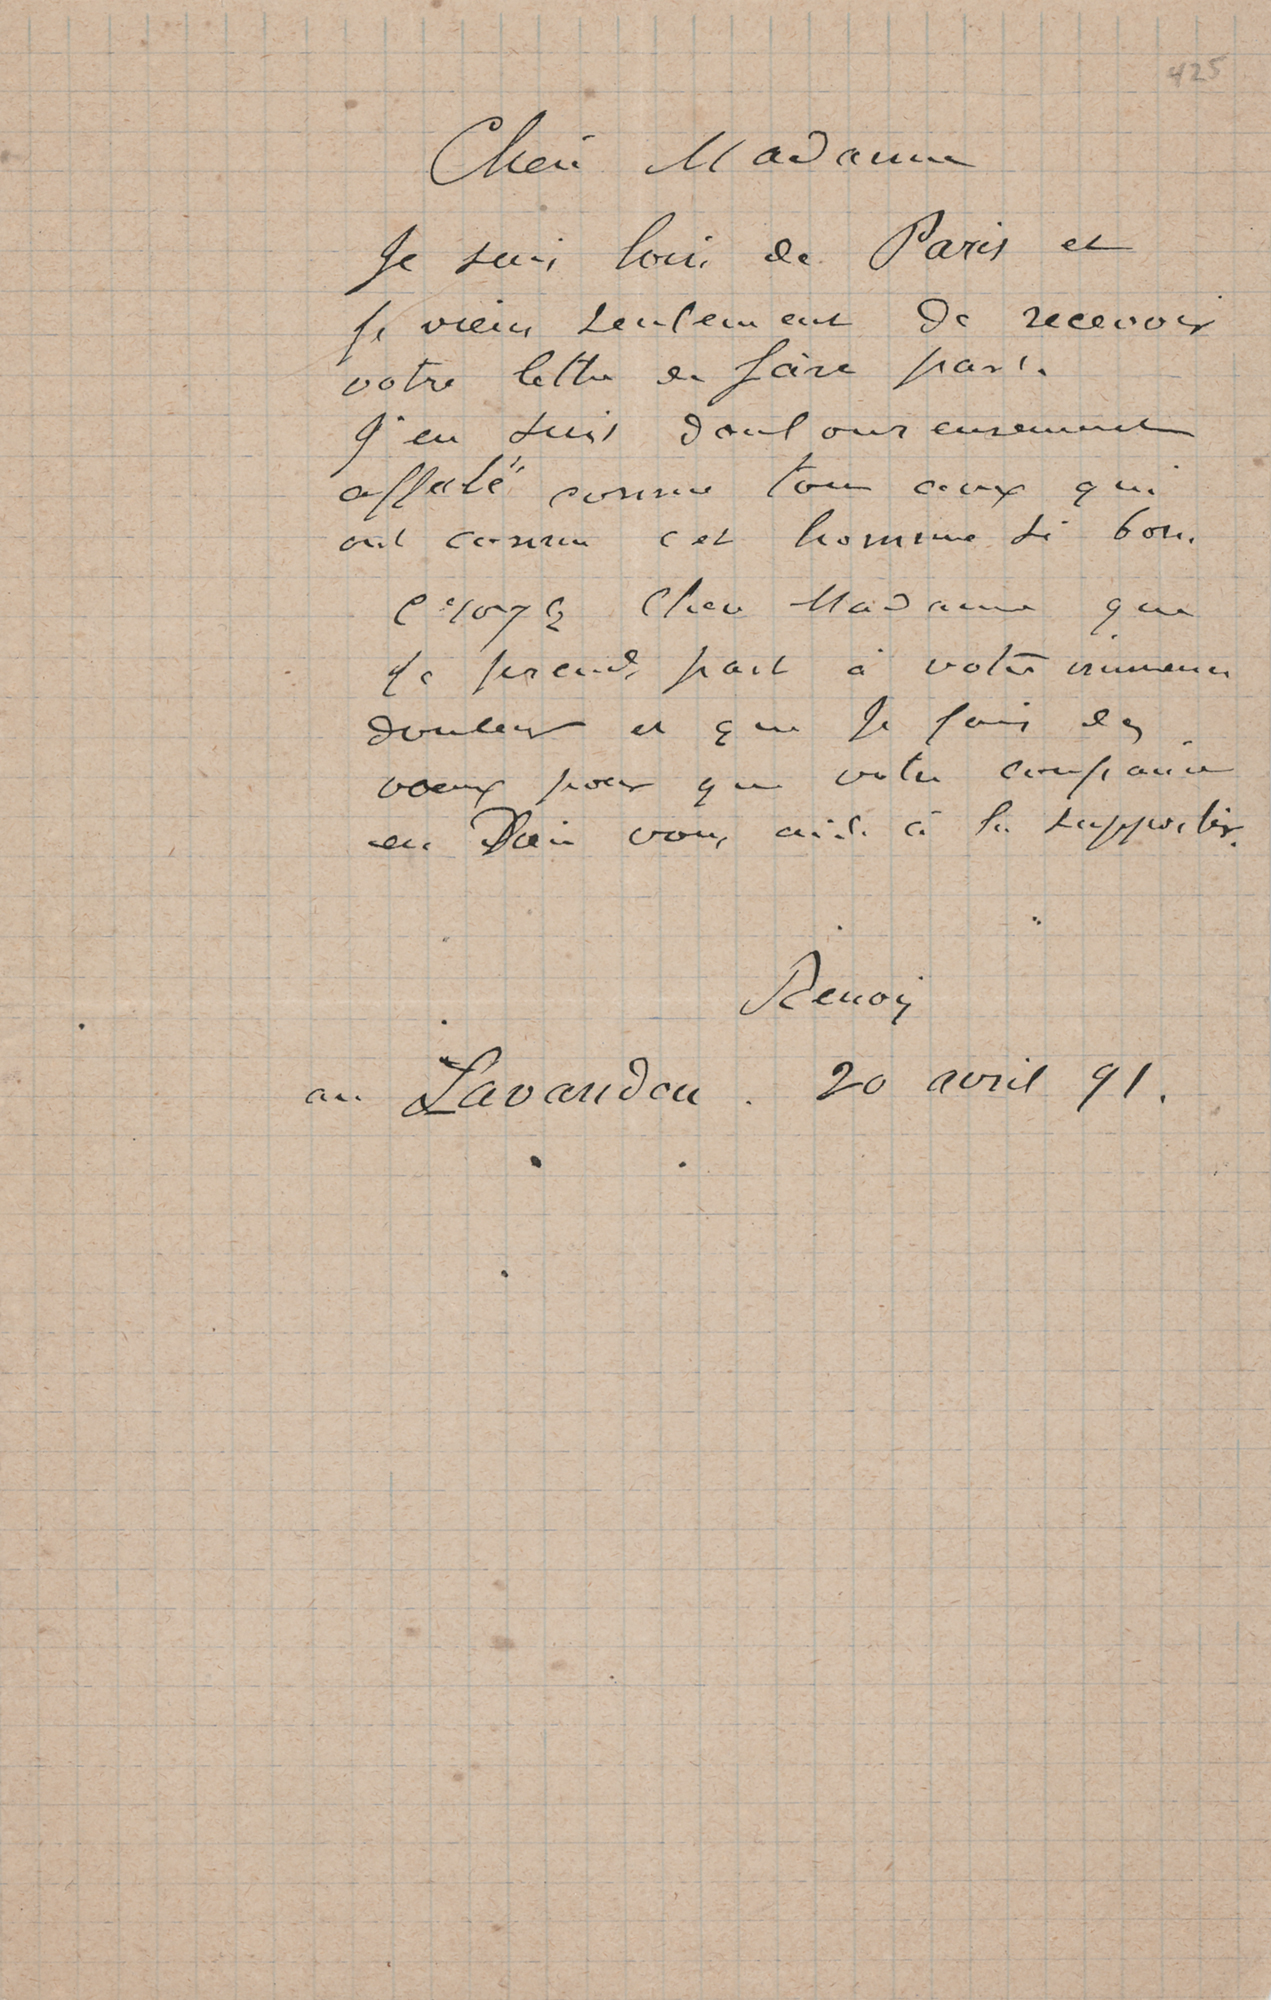 425
Chère Madame
Je suis loin de Paris et
je viens seulement de recevoir
votre lettre de faire part.
J'en suis douloureusement
affecté comme tous ceux qui
ont connu cet homme si bon.
Croyez chère Madame que
je prends part à votre immense
douleur et que je fais des
voeux pour que votre confiance
en Dieu vous aide à la supporter.
Renoir
au Lavandou. 20 avril 91.